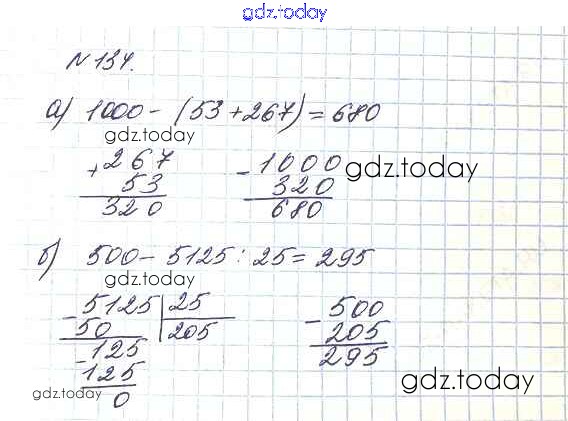 gdz.today
№ 134.
а) 1000 - (53 + 267) = 680
gdz.today
+ 267
53
320
- 1000
320
680
gdz.today
б) 500 - 5125 : 25 = 295
gdz.today
- 5125 | 25
50 205
- 125
125
0
- 500
205
295
gdz.today
gdz.today